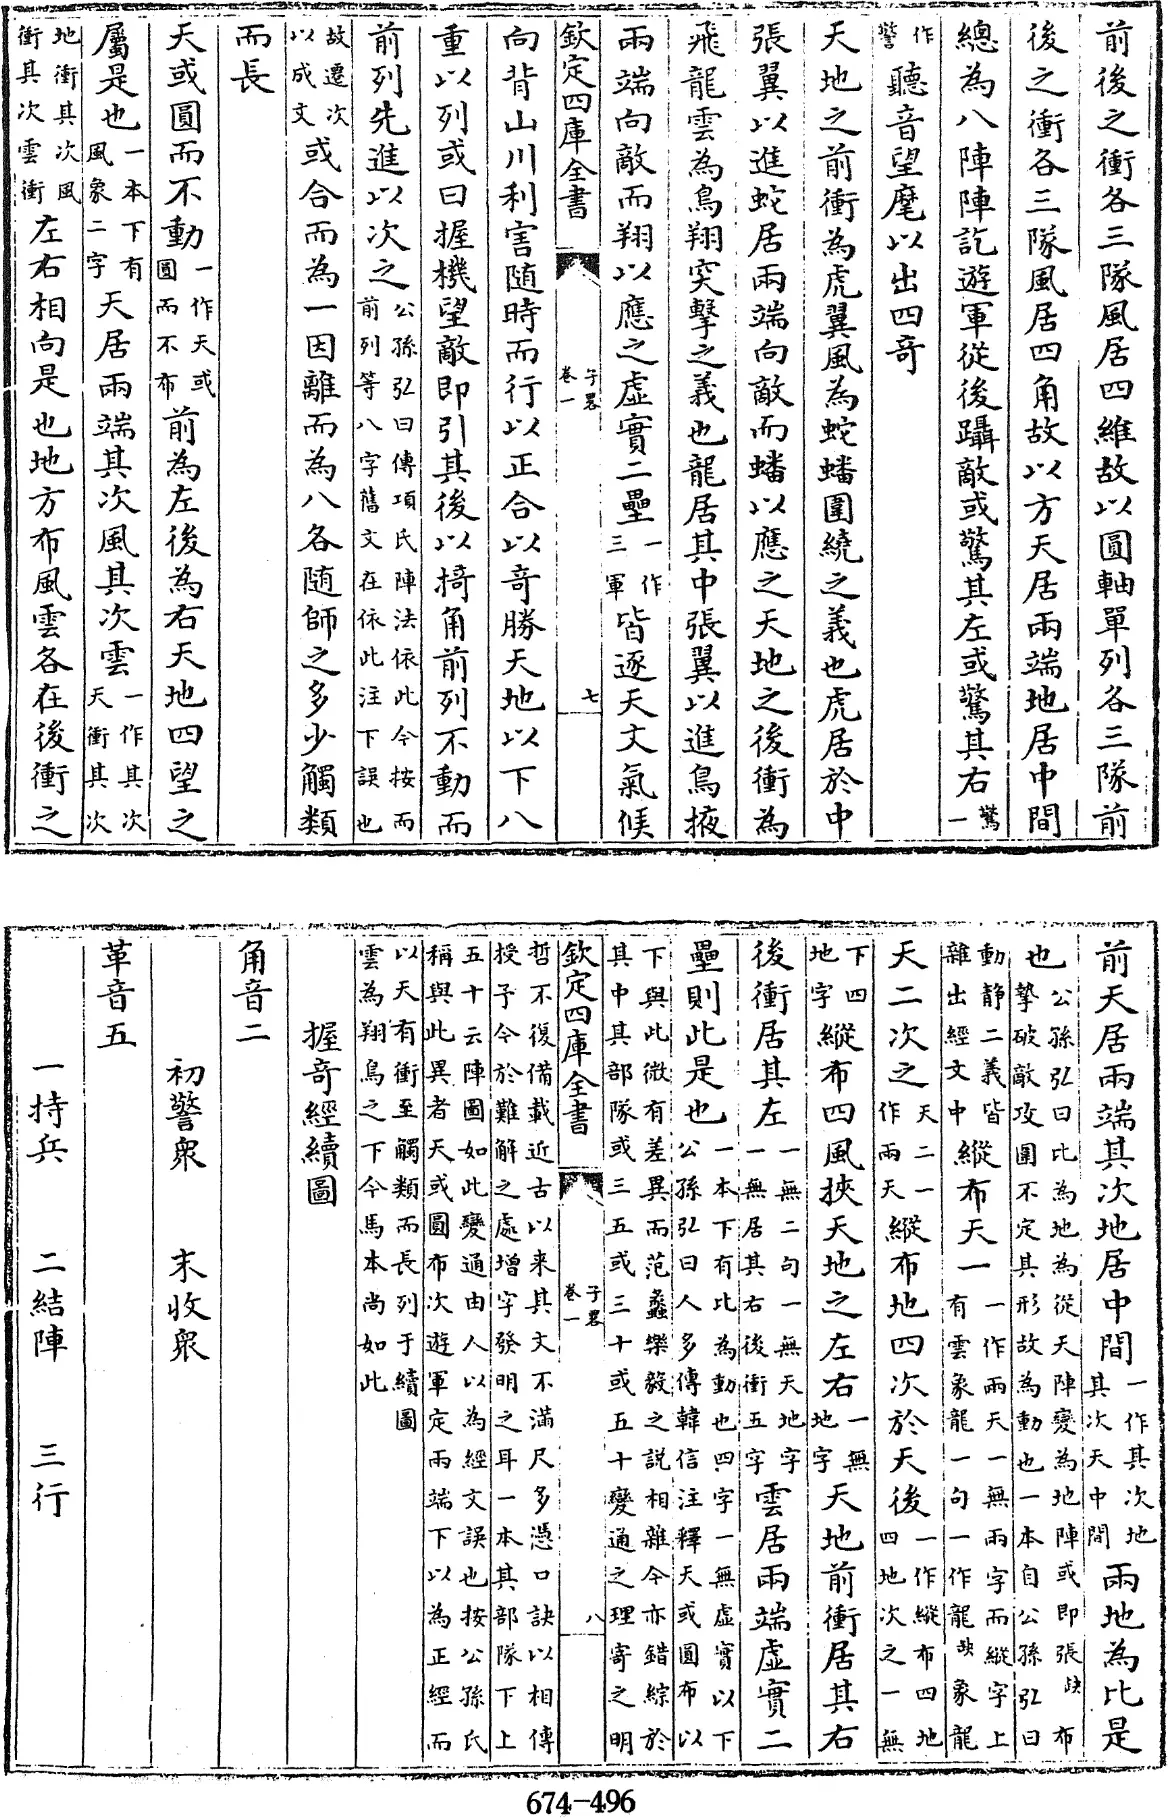 前後之衝各三隊風居四維故以圓軸單列各三隊前
後之衝各三隊風居四角故以方天居兩端地居中間
總為八陣陣訖遊軍從後躡敵或驚其左或驚其右驚一
作警聽音望麾以出四奇
天地之前衝為虎翼風為蛇蟠圍繞之義也虎居於中
張翼以進蛇居兩端向敵而蟠以應之天地之後衝為
飛龍雲為鳥翔突擊之義也龍居其中張翼以進鳥掖
兩端向敵而翔以應之虛實二壘一作三軍皆逐天文氣候
欽定四庫全書 子畧卷一 七
向背山川利害随時而行以正合以奇勝天地以下八
重以列或曰握機望敵即引其後以掎角前列不動而
前列先進以次之公孫弘曰傳項氏陣法依此今按而前列等八字舊文在依此注下誤也
故遷次以成文或合而為一因離而為八各随師之多少觸類
而長
天或圓而不動一作天或圓而不布前為左後為右天地四望之
屬是也一本下有風象二字天居兩端其次風其次雲一作其次天衝其次
地衝其次風衝其次雲衝左右相向是也地方布風雲各在後衝之
前天居兩端其次地居中間一作其次地其次天中間兩地為比是
也公孫弘曰比為地為從天陣變為地陣或即張缺布摯破敵攻圍不定其形故為動也一本自公孫弘曰
動静二義皆雜出經文中縱布天一一作兩天一無兩字而縱字上有雲象龍一句一作龍缺象龍
天二次之天二一作兩天縱布地四次於天後一作縱布四地四地次之一無
下四地字縱布四風挾天地之左右一無地字天地前衝居其右
後衝居其左一無二句一無天地字一無居其右後衝五字雲居兩端虛實二
壘則此是也一本下有比為動也四字一無虛實以下公孫弘曰人多傳韓信注釋天或圓布以
下與此微有差異而范蠡樂毅之説相雜今亦錯綜於其中其部隊或三五或三十或五十變通之理寄之明
欽定四庫全書 子畧卷一 八
哲不復備載近古以来其文不滿尺多憑口訣以相傳授予今於難解之處增字發明之耳一本其部隊下上
五十云陣圖如此變通由人以為經文誤也按公孫氏稱與此異者天或圓布次遊軍定兩端下以為正經而
以天有衝至觸類而長列于續圖雲為翔鳥之下今馬本尚如此
握奇經續圖
角音二
初警衆 末收衆
革音五
一持兵 二結陣 三行
674-496